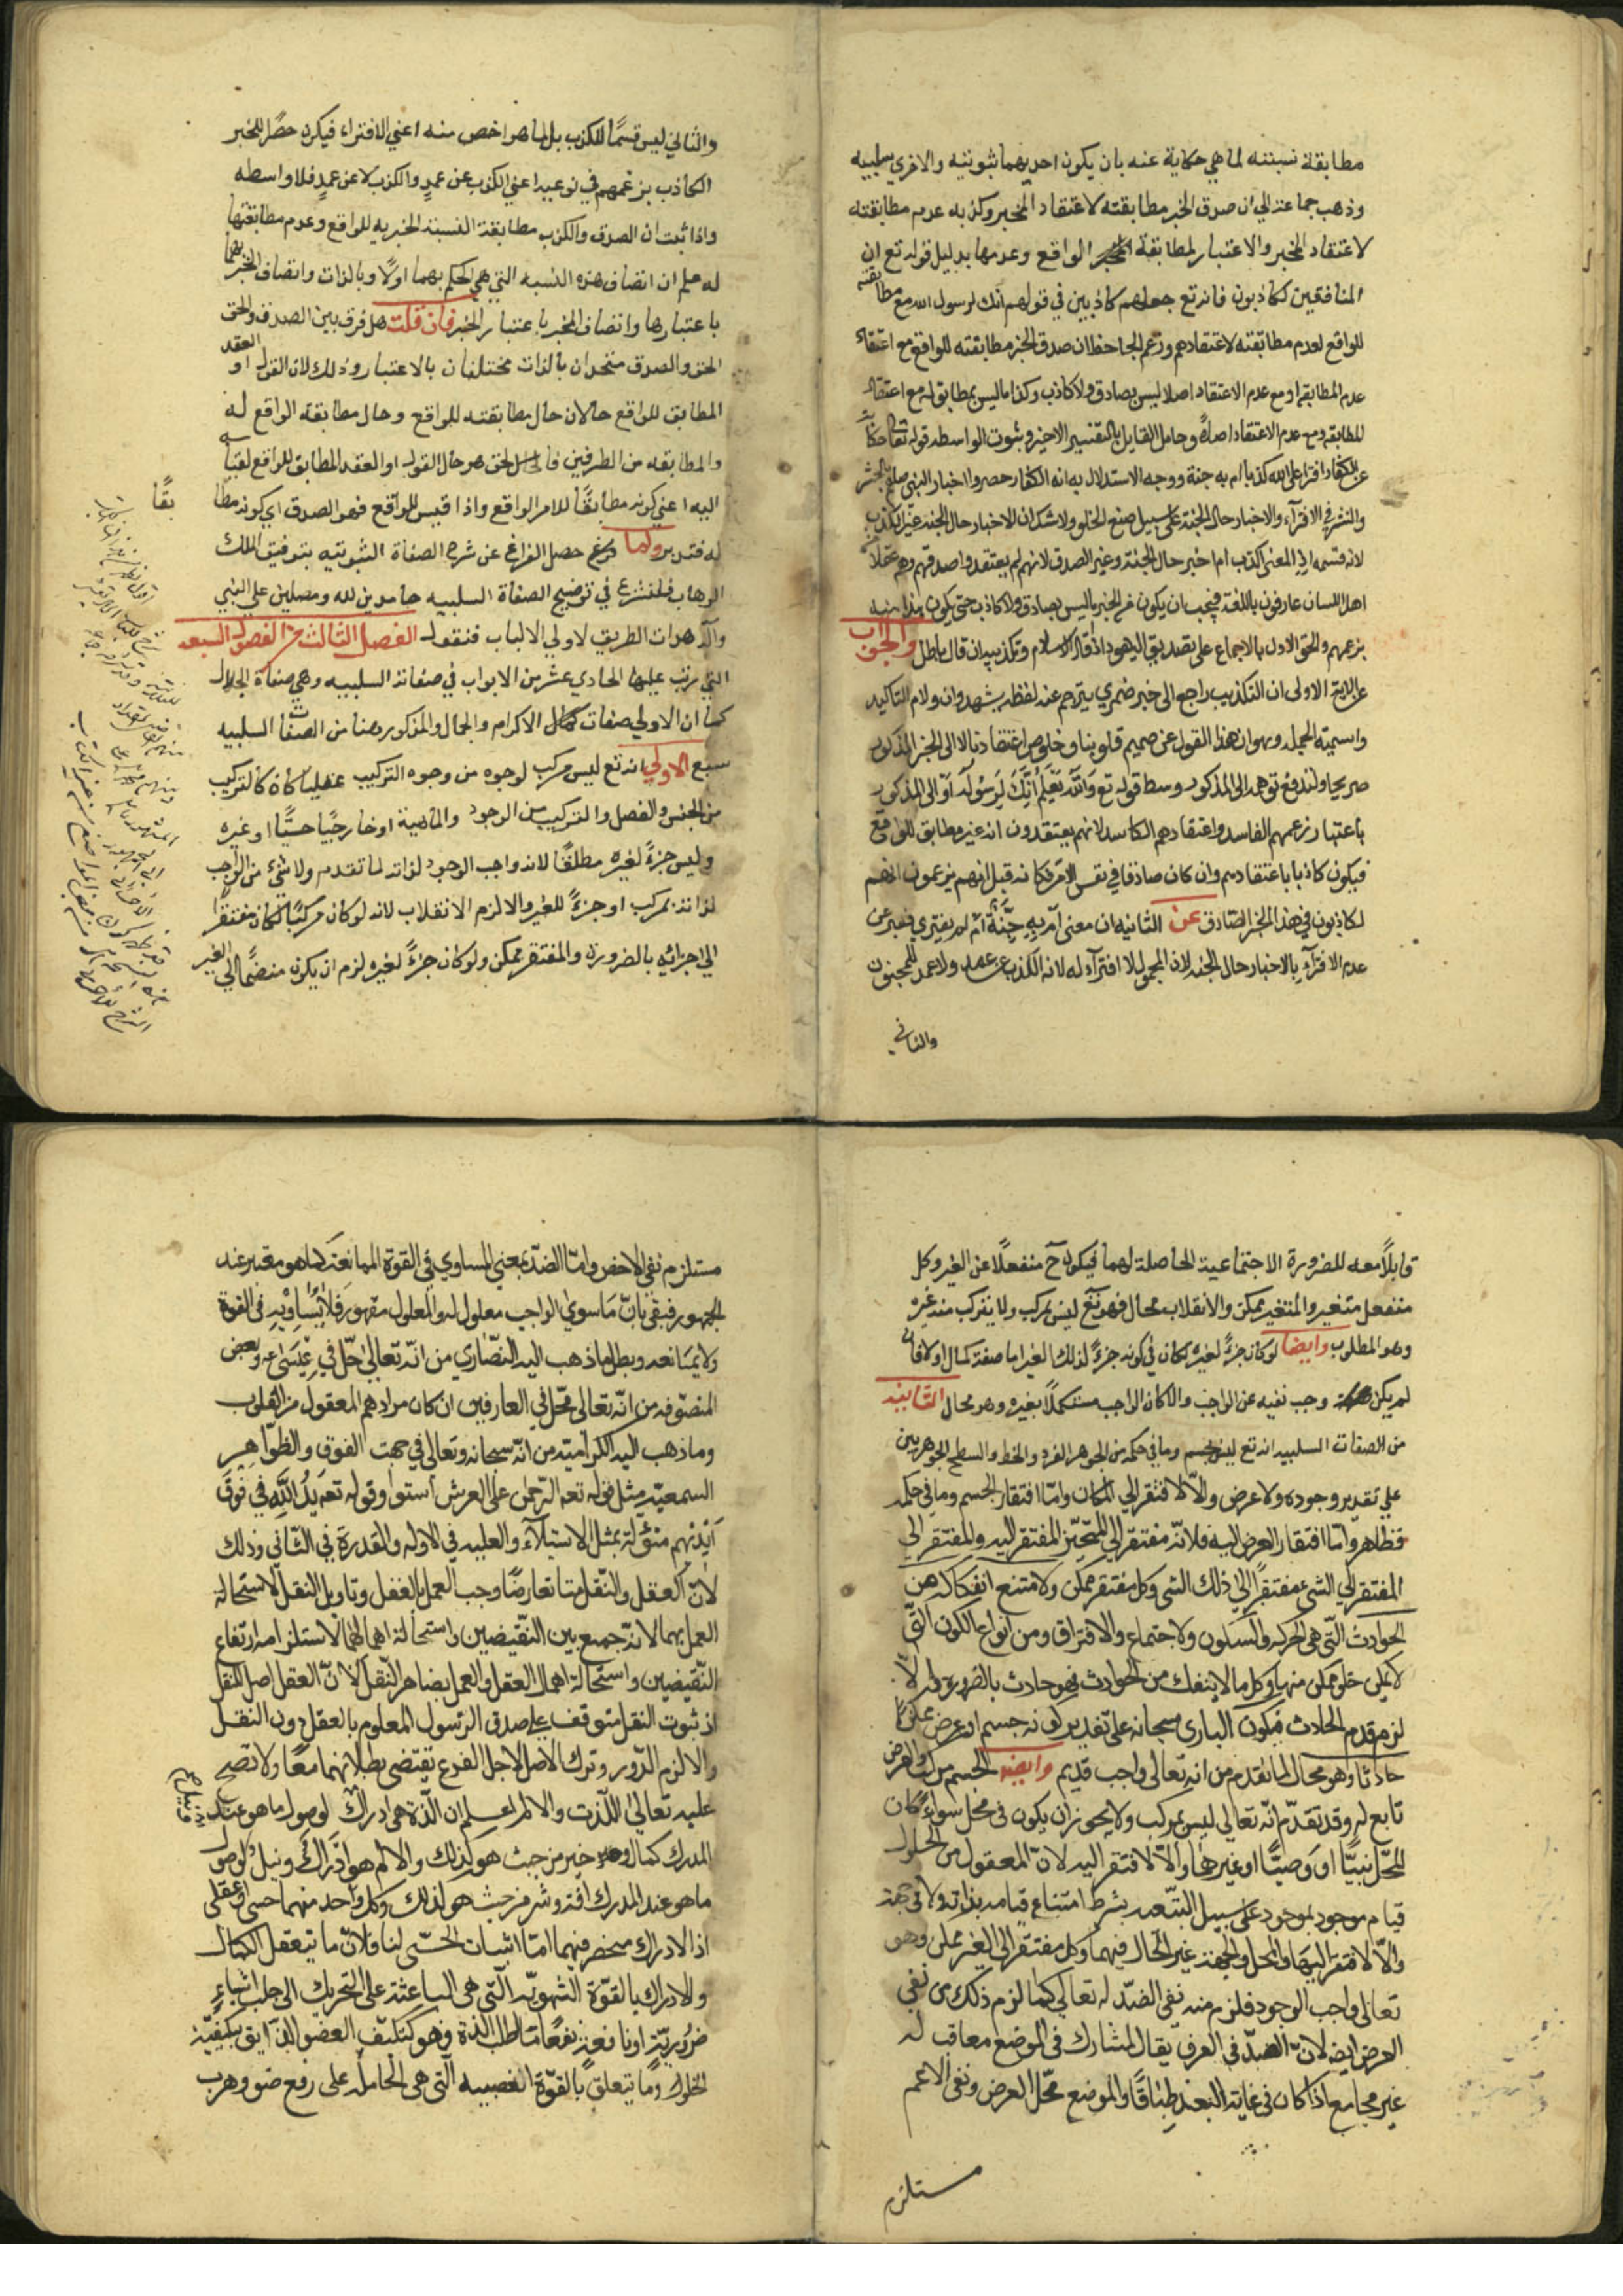 مطابقة نسبته لما هي حكاية عنه بان يكون احديهما ثبوتيه والاخري سلبيه
وذهب جماعة الي ان صدق الخبر مطابقته لاعتقاد المخبر وكذبه عدم مطابقته
لاعتقاد المخبر والاعتبار لمطابقة الواقع وعدمها بدليل قوله تع ان
المنافقين لكاذبون فانه تع جعلهم كاذبين في قولهم انك لرسول الله مع مطابقته
للواقع لعدم مطابقته لاعتقادهم وزعم الجاحظ ان صدق الخبر مطابقته للواقع مع اعتقاد
عدم المطابقه او مع عدم الاعتقاد اصلا ليس بصادق ولا كاذب وكذا ما ليس بمطابق له مع اعتقاد
المطابقه ومع عدم الاعتقاد اصلا وحامل القايل بالتفسير الاخير وثبوت الواسطه قوله تعا حكاية
عن الكفار افترا علي الله كذبا ام به جنة ووجه الاستدلال به انه الكفار حصروا اخبار النبي صلعم بالحشر
والنشر في الافترآء والاخبار حال الجنة علي سبيل منع الخلو ولا شك ان الاخبار حال الجنه غير الكذب
لانه قسمه اذ المعنى اكذب ام اخبر حال الجنة وغير الصدق لانهم لم يعتقدوا صدقهم وهم عقلا
اهل اللسان عارفون باللغة فيجب ان يكون من الخبر ما ليس بصادق ولا كاذب حتي يكون هذا منه
بزعمهم والحق الاول بالاجماع علي تصديق اليهود اذ قال الاسلام وتكذيبه ان قال باطل والجواب
عن الاية الاولى ان التكذيب راجع الى خبر ضمري يترجم عنه لفظه يشهد وان ولام التاكيد
واسمية الجملة وهو ان هذا القول عن صميم قلوبنا وخلوص اعتقادنا لا الى الخبر المذكور
صريحا ولتدفع توهمه الى المذكور وسط قوله تع وَاللّٰه يَعْلَمُ اِنَّكَ لَرَسُولُهُ او الى المذكور
باعتبار زعمهم الفاسد واعتقادهم الكاسد لانهم يعتقدون انه غير مطابق للواقع
فيكون كاذبا باعتقادهم وان كان صادقا في نفس الامر فكانه قيل انهم يزعمون انهم
لكاذبون في هذا الخبر الصادق عن الثانيه ان معنى اَمْ بِهِ جِنَّةٌ ام لم يفتري فعبر عن
عدم الافترآء بالاخبار حال الجنه لان المجنون لا افترآء له لانه الكذب عن عمد ولا عمد للمجنون
والثاني
والثاني ليس قسمًا للكذب بل لما هو اخص منه اعني الافتراء فيكون حصرا للخبر
الكاذب بزعمهم في نوعيه اعني الكذب عن عمدٍ والكذب لا عن عمدٍ فلا واسطه
واذا ثبت ان الصدق والكذب مطابقة النسبة الخبريه للواقع وعدم مطابقتها
له علم ان اتصاف هذه النسبه التي هي الحكم بهما اولًا وبالذات واتصاف الخبر بهما
باعتبارها واتصاف المخبر باعتبار الخبر فان قلت هل فرق بين الصدق والحق
الحق والصدق متحدان بالذات مختلفان بالاعتبار وذلك لان القول او العقد
المطابق للواقع حالان حال مطابقته للواقع وحال مطابقة الواقع له
والمطابقه من الطرفين فالحق هو حال القول او العقد المطابق للواقع لقياسه
اليه اعني كونه مطابقًا للامر الواقع واذا قيس للواقع فهو الصدق اي كونه مطابقًا
له فتدبر ولما فرغ حصل الفراغ عن شرح الصفاة الثبوتيه بتوفيق الملك
الوهاب فلنشرع في توضيح الصفاة السلبيه حامدين لله ومصلين علي النبي
وآله هداة الطريق لاولي الالباب فنقول الفصل الثالث من الفصول السبعه
التي رتب عليها الحادي عشر من الابواب في صفاته السلبيه وهي صفاة الجلال
كما ان الاولي صفات كمال الاكرام والجمال والمذكور هنا من الصفات السلبيه
سبع الاولي انه تع ليس مركب لوجوه من وجوه التركيب عقليا كان كالتركيب
من الجنس والفصل والتركيب من الوجود والماهية او خارجيًا حسيًا او غيره
وليس جزءً لغيره مطلقًا لانه واجب الوجود لذاته لما تقدم ولا شئ من الواجب
لذاته بمركب او جزءً للغير والا لزم الانقلاب لانه لو كان مركبًا لكان مفتقرًا
الي اجزائه بالضرورة والمفتقر ممكن ولو كان جزءً لغيره لزم ان يكون منضمًا الي الغير
قابلًا معه للضرورة الاجتماعية الحاصلة لهما فيكون ح منفعلًا عن الغير وكل
منفعل متغير والمتغير ممكن والانقلاب محال فهو تع ليس بمركب ولا يتركب منه غيره
وهو المطلوب وايضا لو كان جزءً لغيره لكان في كونه جزءً لذلك الغير اما صفة كمال او لا فان
لم يكن وجب نفيه عن الواجب والا كان الواجب مستكملًا بغيره وهو محال الثانيه
من الصفات السلبيه انه تع ليس بجسم وما في حكمه من الجوهر الفرد والخط والسطح الجوهريين
علي تقدير وجوده ولا عرض والّا لافتقر الي المكان وامّا افتقار الجسم وما في حكمه
فظاهر وامّا افتقار العرض اليه فلانّه مفتقر الي المتحيّز المفتقر اليه والمفتقر الي
المفتقر الي الشئ مفتقرًا الي ذلك الشئ وكل مفتقر ممكن ولامتنع انفكاكه من
الحوادث الّتي هي الحركه والسكون والاجتماع والافتراق ومن انواع الكون الّتي
لا يمكن خلو ممكن منها وكل ما لا ينفك من الحوادث فهو حادث بالضرورة والا
لزم قدم الحادث فيكون البارى سبحانه علي تقدير كونه جسم او عرض ممكنًا
حادثًا وهو محال لما تقدم من انه تعالى واجب قديم وايضا الجسم مركب والعرض
تابع له وقد تقدّم انّه تعالي ليس بمركب ولا يجوز ان يكون في محل سواءً كان
المحّل نبيًّا او وَصيًّا او غيرهما والّا لافتقر اليه لانّ المعقول من الحلول
قيام موجود بموجود علي سبيل التبّعيه بشرط امتناع قيامه بذاته ولا في جهة
والّا لافتقر اليها والمحل والجهة غير الحال فيهما وكل مفتقر الي الغير ممكن وهو
تعالى واجب الوجود فلزم منه نفي الضدّ له تعالي كما لزم ذلك من نفي
العرض ايضا لانّ الضدّ في العرف يقال لمشارك في الموضع معاقب له
غير مجامع اذا كان في غاية البعد طباقًا والموضع محّل العرض ونفى الاعم
مستلزم
مستلزم نفى الاخص وامّا الضدّ بمعني المساوي في القوة الممانعة كما هو معتبر عند
الجمهور فينفي بانّ مَا سوى الواجب معلول له والمعلول مقهور فَلا يُسَاوِيْهِ في القوة
ولا يمَانعه وبطل ما ذهب اليه النّصٰاري من انّه تعالى حلّ في عِيْسَى ع وبعض
المتصّوفه من انّه تعالى محّل في العارفين ان كان مرادهم المعقول من القلوب
وما ذهب اليه الكراميّه من انّه سبحانه وتعالى في جهت الفوق والظّواهر
السمعيّه مثل قوله تعه الرّحمن على العرش استوا وقوله تعه يَدُ اللّٰه في فَوقَ
اَيْديْهم متؤلة بمثل الاستيلآء والغلبه في الاوله والقدرة في الثّاني وذلك
لانّ العقل والنّقل متا تعارضا وجب العمل بالعقل وتاويل النقل لاستحالة
العمل بهما لانّه جمع بين النّقيضين واستحالة اهمالهما لاستلزامه ارتفاع
النّقيضين واستحالة اهمال العقل والعمل بضاهر النّقل لانّ العقل اصل للنقل
اذ ثبوت النقل متوقف علي صدق الرّسول المعلوم بالعقل دون النقل
والا لزم الدّور وترك الاصل لاجل الفرع يقتضى بطلانهما معًا ولا تصح
عليه تعالى اللّذت والالم اعلم ان الّذة هى ادراك لوصول ما هو عند
المدرك كمال وخير من حيث هو كذلك والالم هو ادراك ونيل لوصول
ما هو عند المدرك افة وشر من حيث هو كذلك وكل واحد منهما حسى او عقلى
اذ الادراك منحصر فيهما امّا اثبات الحسّى لنا فلانّ ما يتعقل الكمال
والادراك بالقوّة الشهويّه الّتى هى الباعثة على التحريك الى جلب اشياء
ضروريّة او نافعة نفعًا مّا طلب الّذة وهو كتكيّف العضو الذّايق بكيفيّة
الحلوا وما يتعلق بالقوّة الغضبيه الّتى هى الحامله على رفع ضو وهرب